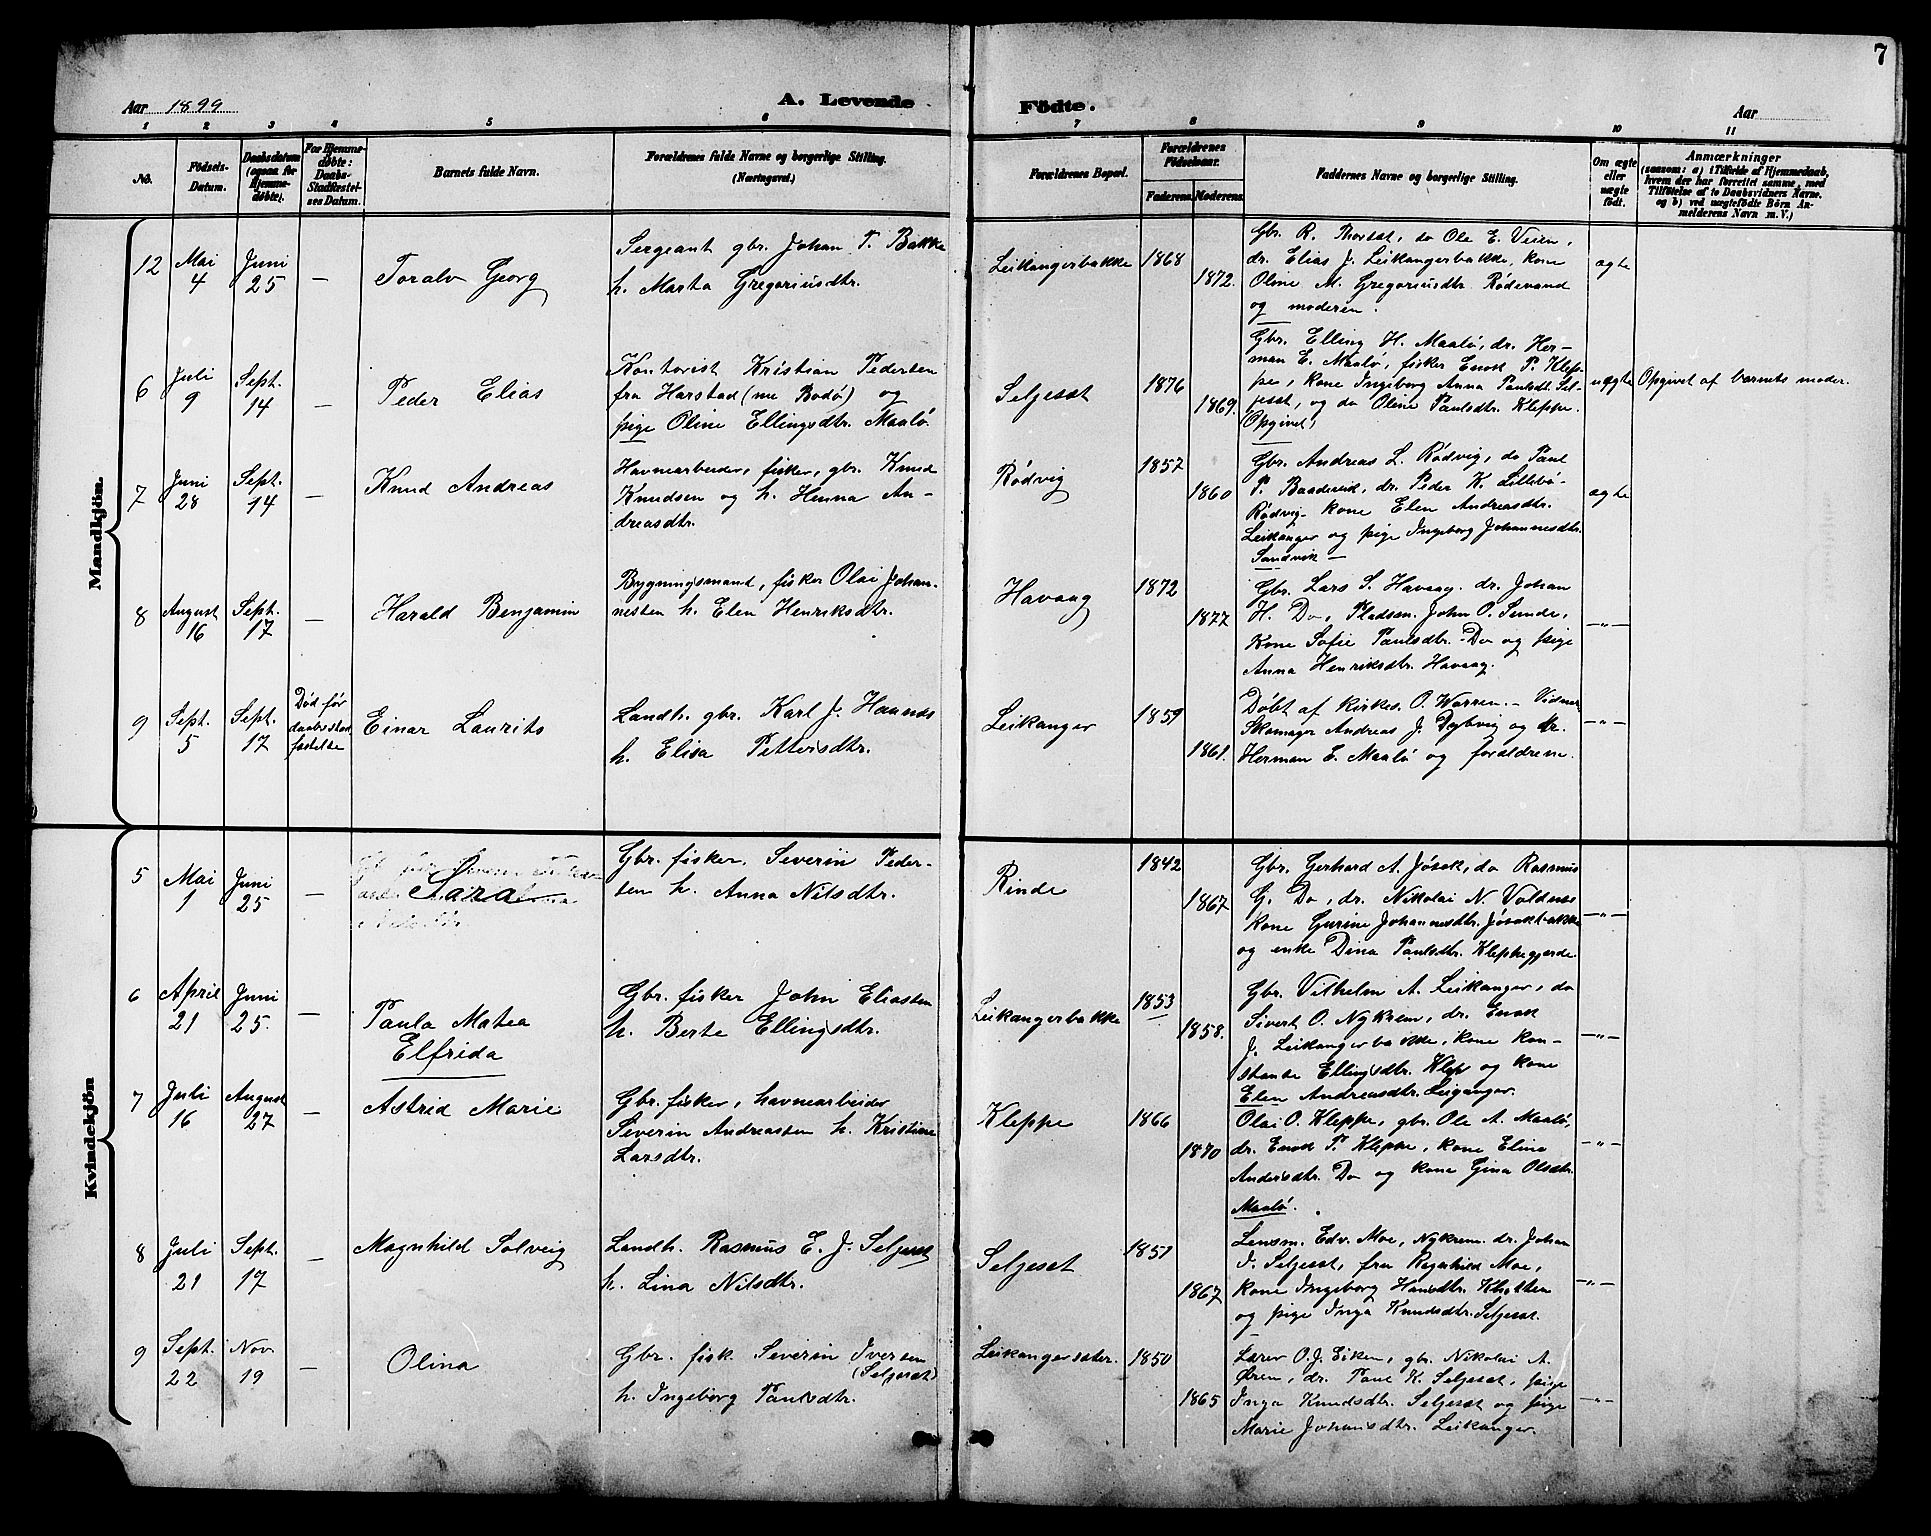 7
Aar 1899
A. Levende
Födte.
Aar
1 2 3 4 5 6 7 8 9 10 11
No.
Födsels-
Datum.
Daabsdatum
(ogsaa for
Hjemme-
döbte).
For Hjemme-
døbte:
Daabs-
Stadfæstel-
ses Datum.
Barnets fulde Navn.
Forældrenes fulde Navne og borgerlige Stilling.
(Næringsvei.)
Forældrenes Bopæl.
Forældrenes
Födselsaar.
Faderens. Moderens.
Faddernes Navne og borgerlige Stilling.
Om ægte
eller
uægte
født.
Anmærkninger
(saasom: a) i Tilfælde af Hjemmedaab,
hvem der har forrettet samme, med
Tilföielse af to Daabsvidners Navne.
og b) ved uægtefödte Börn An-
melderens Navn m. V.)
Mandkjön.
12
Mai
4
Juni
25
—
Toralv Georg
Sergeant gbr. Johan P. Bakke
h. Marta Gregoriusdtr.
Leikangerbakke
1868
1872.
Gbr. R. Thorsæt, do Ole E. Veien,
dr. Elias J. Leikangerbakke, kone
Oline M. Gregoriusdtr. Rödevand
og moderen.
ægte
6
Juli
9
Sept.
14
—
Peder Elias
Kontorist Kristian Pedersen
fra Harstad (nu Bodö) og
pige Oline Ellingsdtr. Maalö.
Seljesæt
1876
1869.
Gbr. Elling H. Maalö, dr. Her-
man E. Maalö, fisker Enok P. Klep-
pe, kone Ingeborg Anna Paulsdt. Sel-
jesæt, og do Oline Paulsdtr. Kleppe.
Opgivet,
uægte
Opgivet af barnets moder.
7
Juni
28
Sept.
14
—
Knud Andreas
Havnearbeider, fisker, gbr. Knud
Knudsen og h. Henna An-
dreasdtr.
Rødvig
1857
1860
Gbr. Andreas L. Rødvig, do Paul
P. Baadereid, dr. Peder K. Lillebö-
Rødvig, kone Elen Andreasdtr.
Leikanger og pige Ingeborg Johannesdtr.
Sandvik —
ægte
8
August
16
Sept.
17
—
Harald Benjamin
Bygningsmand, fisker Olai Johan-
nesten h. Elen Henriksdtr.
Havaag
1872
1877
Gbr. Lars S. Havaag. dr. Johan
H. Do, Pladsm. John O. Sunde,
Kone Sofie Paulsdtr. Do og pige
Anna Henriksdtr. Havaag.
—"—
9
Sept.
5
Sept.
17
Død før
daabsstad
fæstelse
Einar Laurits
Landh. gbr. Karl J. Haunæs
h. Elisa Pettersdtr.
Leikanger
1859
1861.
Døbt af kirkes. O. Warren. – Vidner
Skomager Andreas J. Dybvig og dr.
Herman E. Maalö og forældrene.
—"—
Kvindekjön
5
Mai
1
Juni
25
—
Sara
Gbr. fisker. Severin Peder-
sen h. Anna Nilsdtr.
Rinde
1842
1867
Gbr. Gerhard A. Jösok, do Rasmus
G. Do, dr. Nikolai N. Voldnes
kone Gurine Johannesdtr. Jösokbakke
og enke Dina Paulsdtr. Kleppegjerde.
—"—
6
April
21
Juni
25.
—
Paula Matea
Elfrida
Gbr. fisker John Eliasten
h. Berte Ellingsdtr.
Leikangerbakke
1853
1858.
Gbr. Vilhelm A. Leikanger, do
Sivert O. Nykrem, dr. Enok
J. Leikangerbakke, kone Kon-
stanse Ellingsdtr. Klep og kone
Elen Andreasdtr. Leiganger.
—"—
7
Juli
16
August
27
—
Astrid Marie
Gbr. fisker, havnearbeider
Severin Andreasten h. Kristine
Larsdtr.
Kleppe
1866
1870
Olai O. Kleppe, gbr. Ole A. Maalö,
dr. Enok P. Kleppe, kone Eline
Andersdtr. Do og kone Gina Olsdtr.
Maalö.
—"—
8
Juli
21
Sept.
17
—
Magnhild Solveig
Landh. Rasmus E. J. Seljesæt
h. Lina Nilsdtr.
Seljesæt
1851
1867
Lensm. Edv. Moe, Nykrem. dr. Johan
J. Seljesæt, fru Ragnhild Moe,
kone Ingeborg Hansdtr.
og pige Inga Knudsdtr. Seljesæt.
—"—
9
Sept.
22
Nov.
19
—
Olina
Gbr. fisk. Severin Iversen
(Seljesæt)
h. Ingeborg Paulsdtr.
Leikangersæter.
1850
1865
Lærer O. J. Eiken, gbr. Nikolai A.
Ören, dr. Paul K. Seljesæt, pige
Inga Knudsdtr. Seljesæt og pige
Marie Johansdtr. Leikanger.
—"—